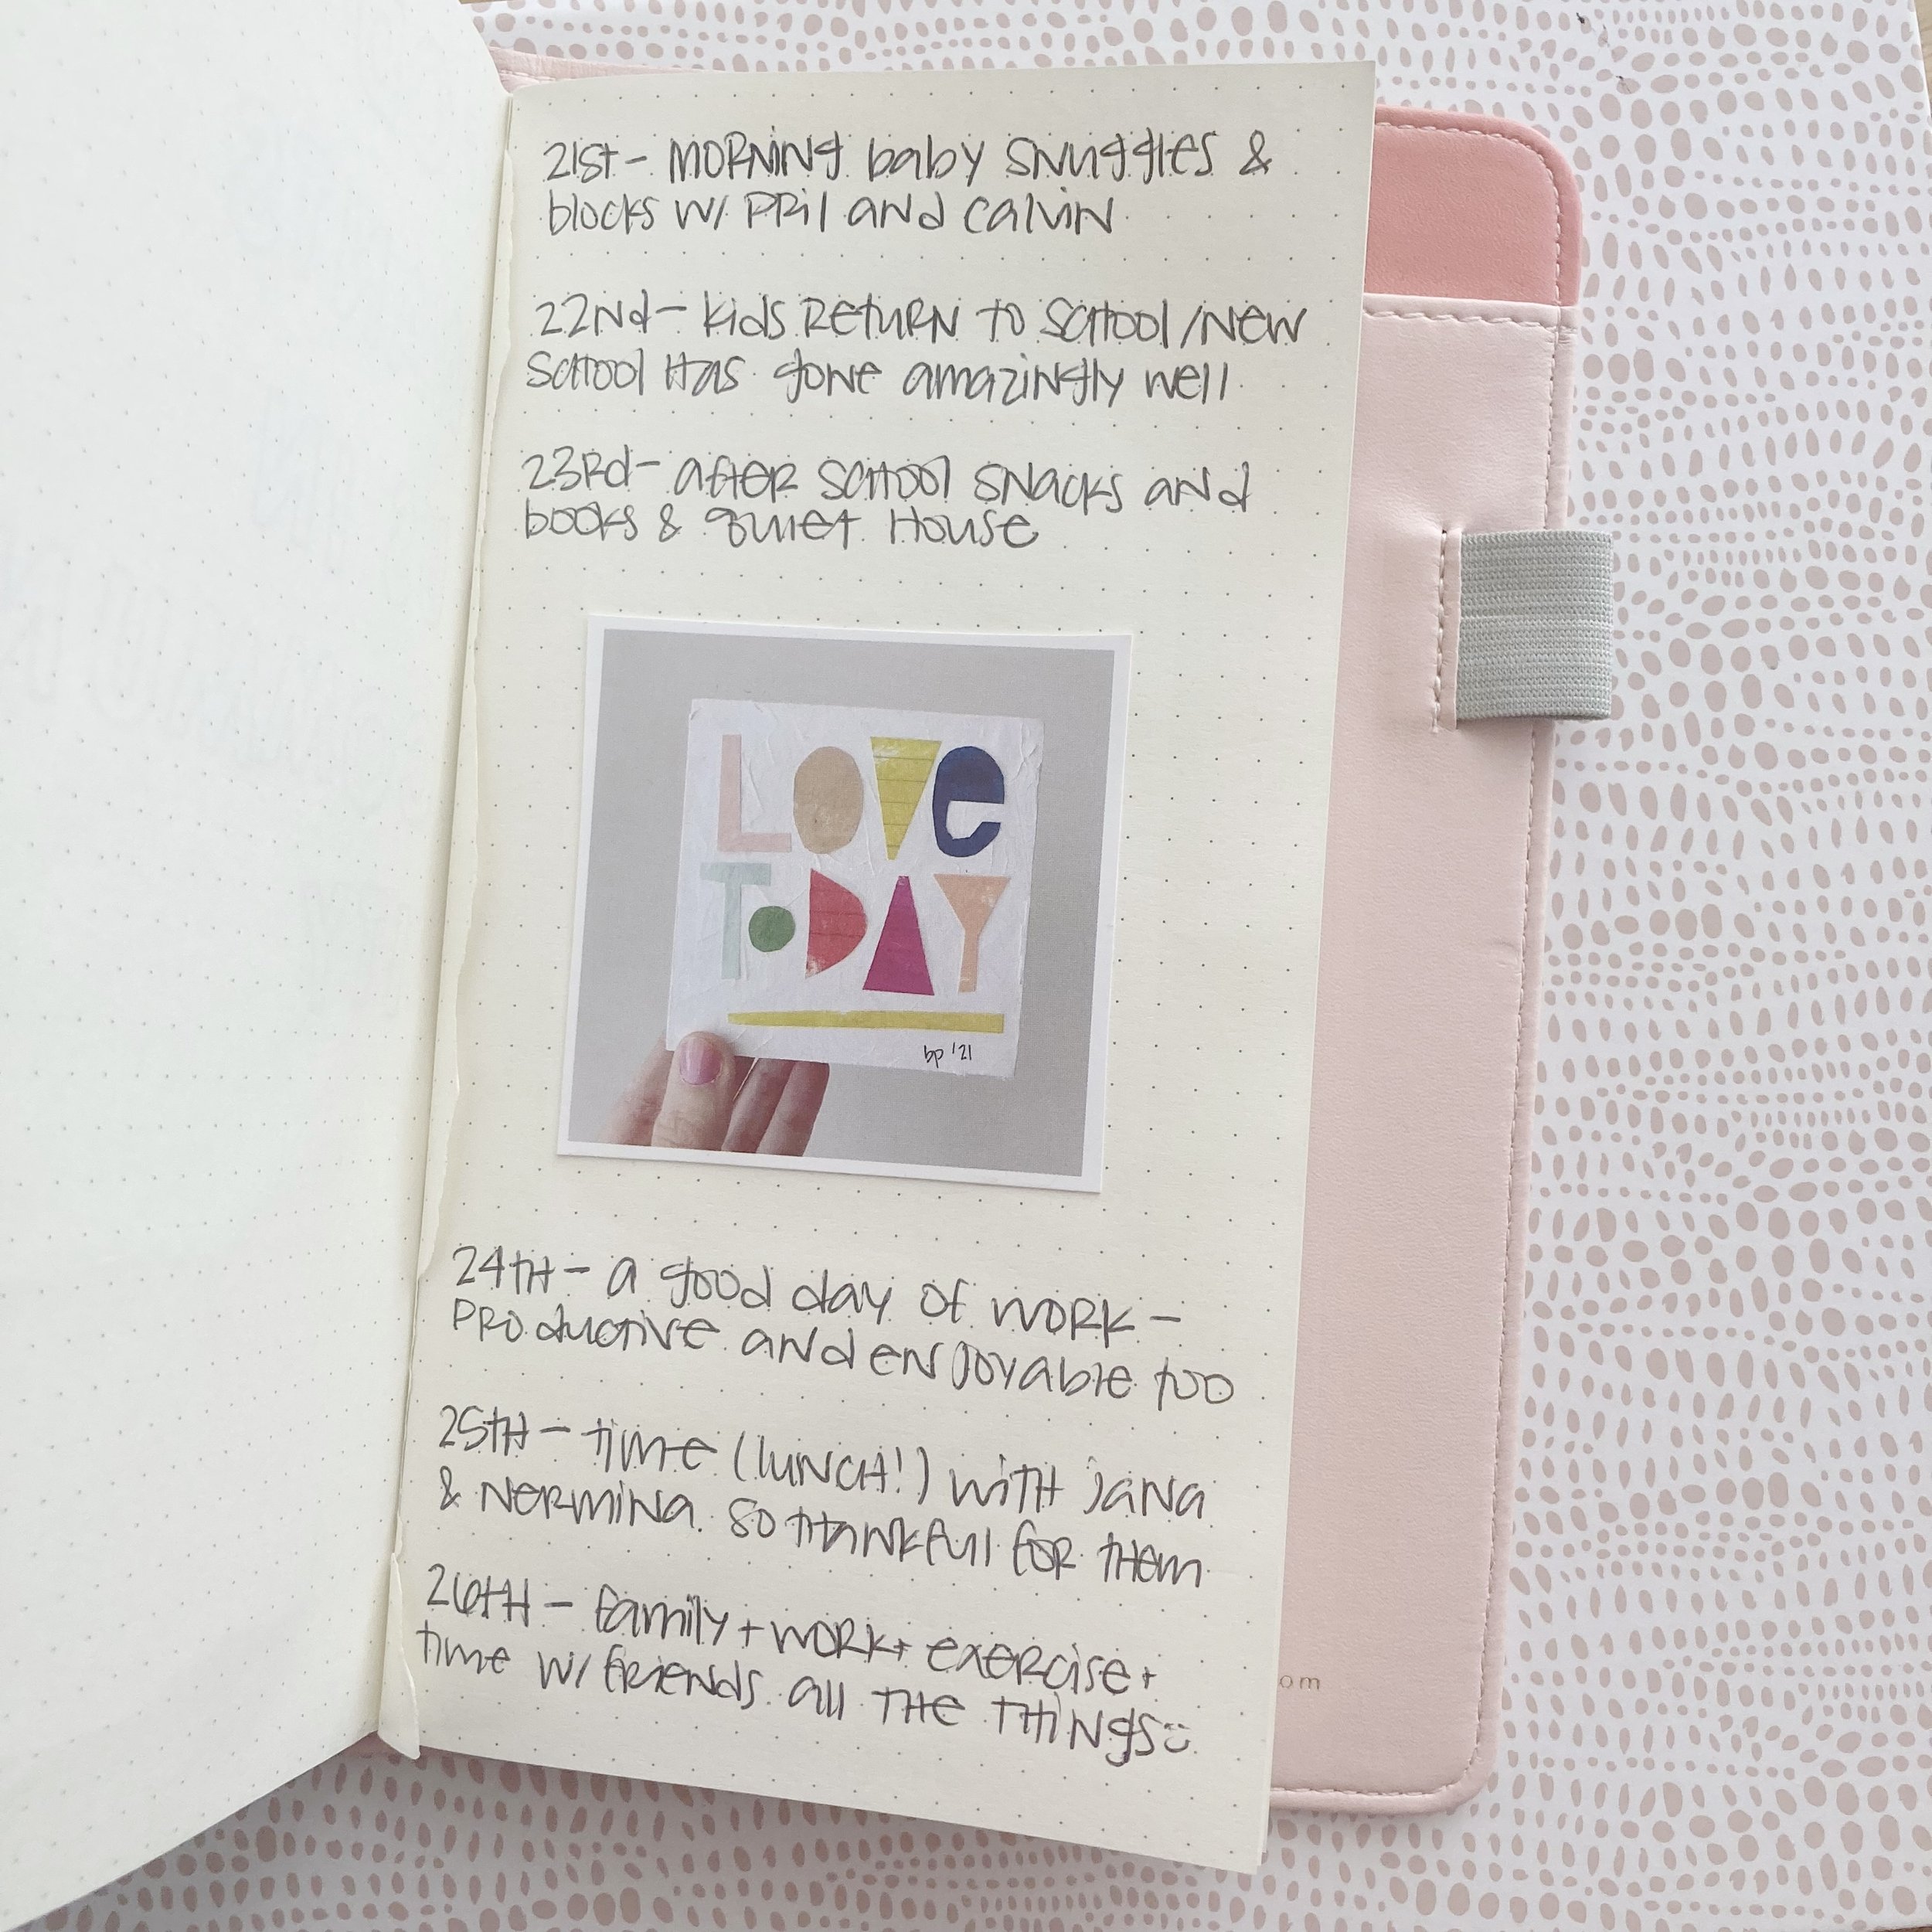 21st - MORNING baby snuggles &
blocks w/ PRil and calvin
22nd - kids RETURN TO SCHOOL/NEW
SCHOOL HAS gone amazingly well
23Rd - after SCHOOL SNACKS and
books & quiet House
LOVe
ToDAY
bp '21
24TH - a good day of work -
PROductive and enjoyable too
25TH - time (lunch!) with jana
& Nermina. So thankful for them
26TH - family + work + exercise +
time w/ friends. all THE THINGS :)
om